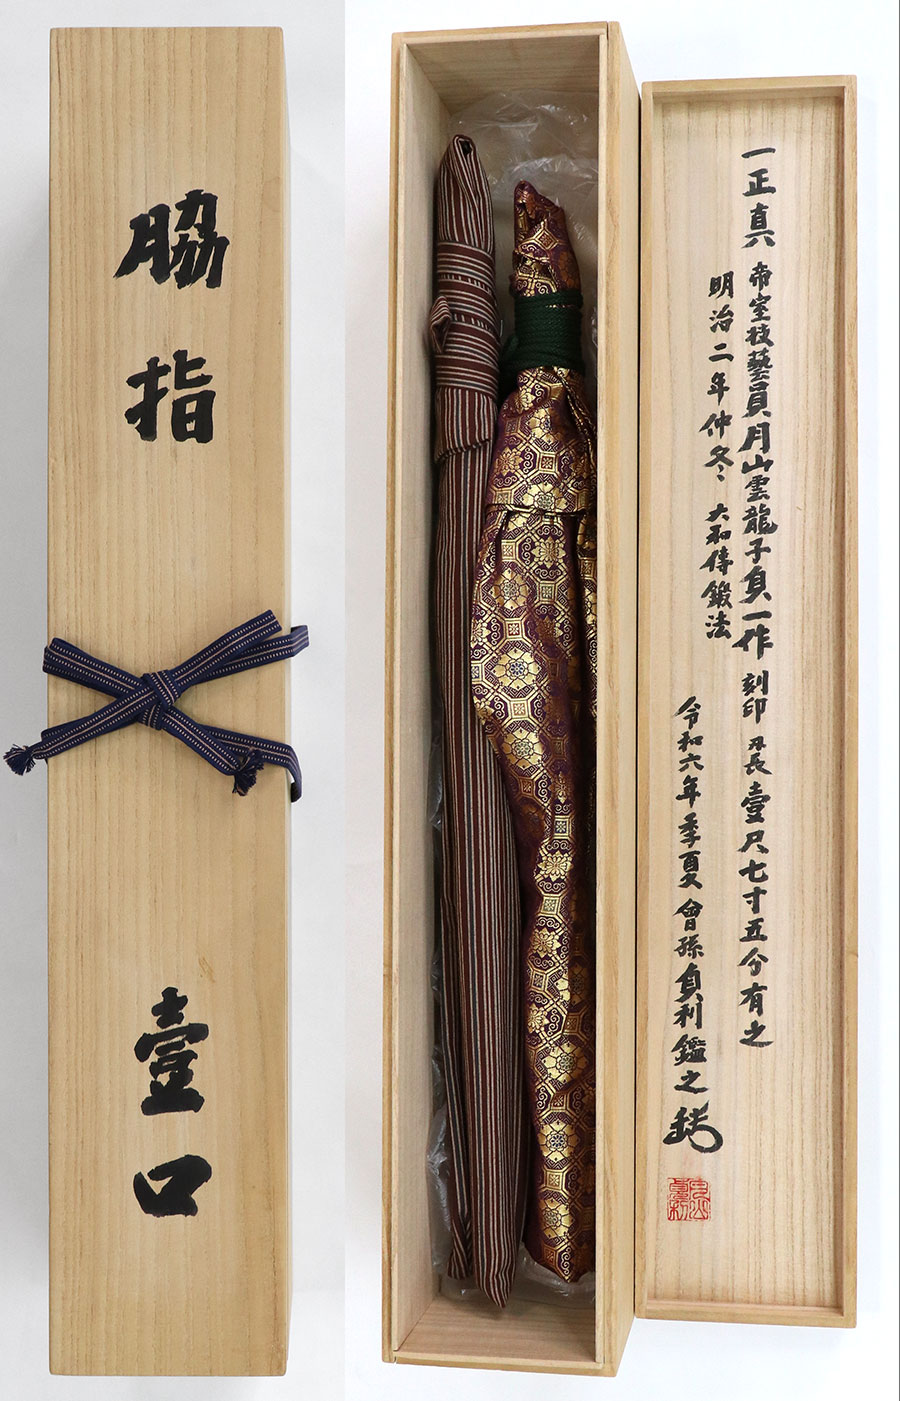 脇指 壹口
一正真 帝室技藝員月山雲龍子貞一作 刻印 刃長壹尺七寸五分有之
明治二年仲冬 大和傳鍛法
令和六年季夏 曾孫貞利鑑之